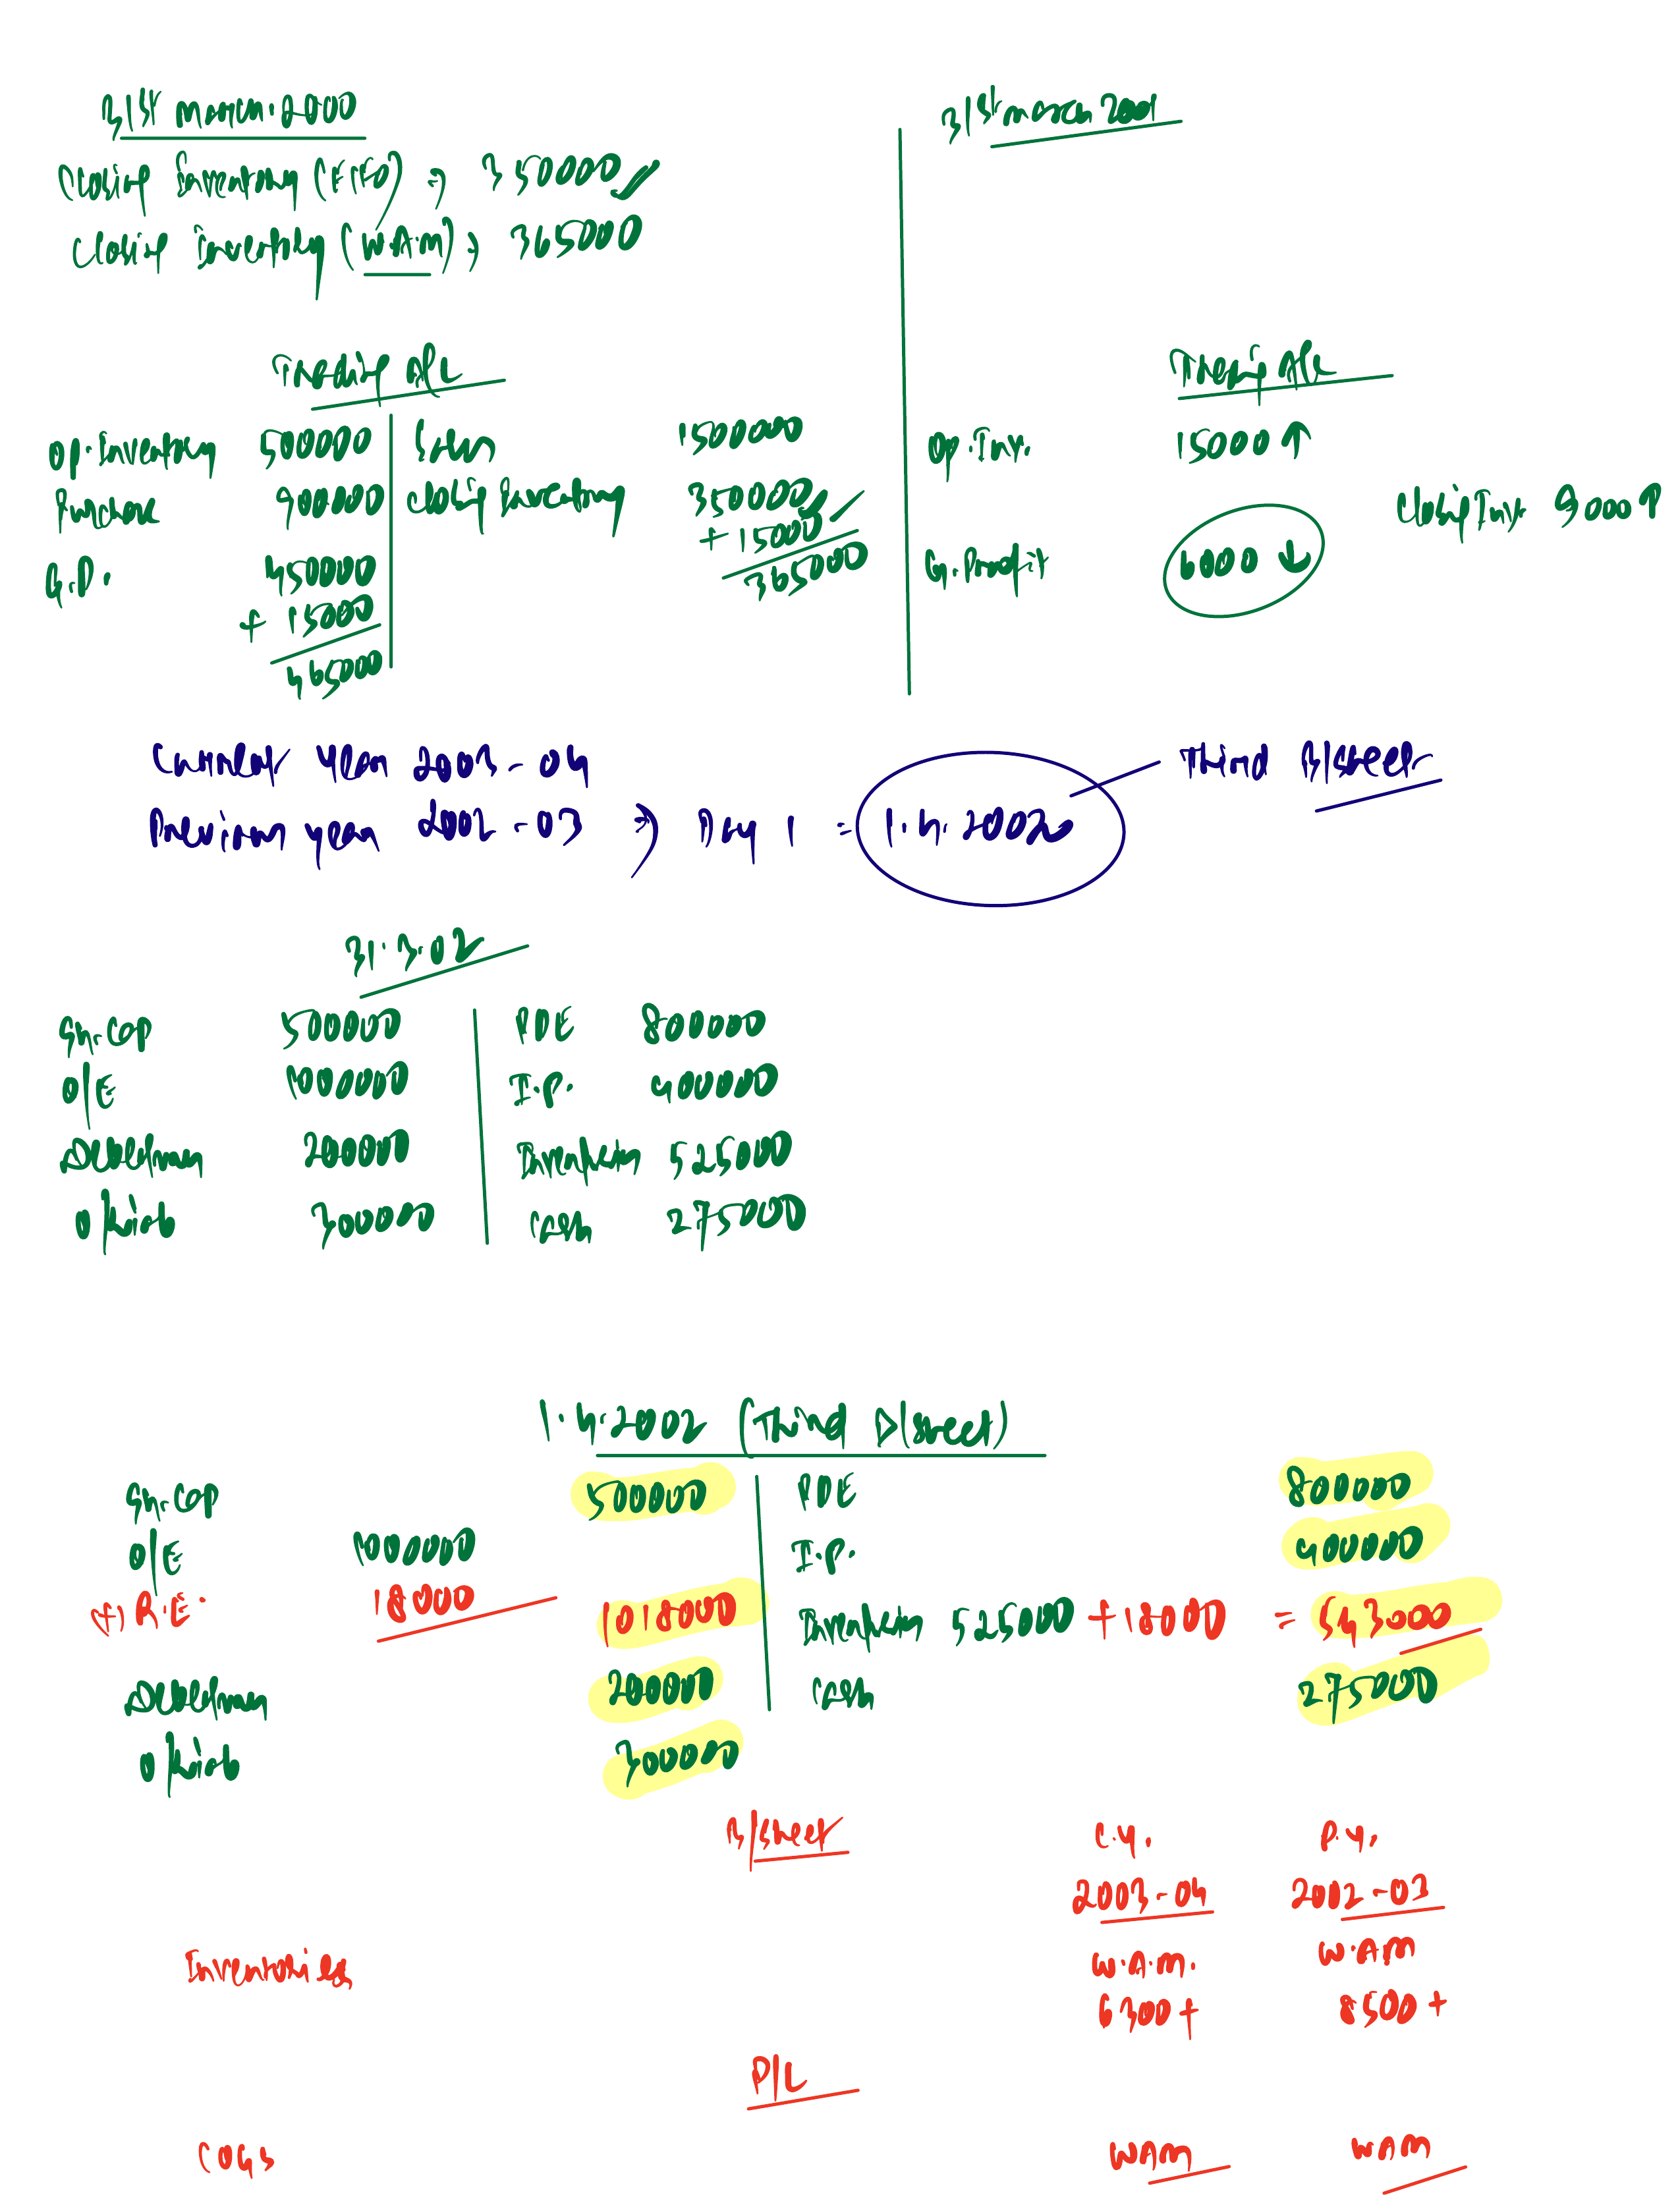 31st March. 2000
Closing Inventory (FIFO) ⇒ 350000
Closing Inventory (W.A.M) ⇒ 365000
Trading A/c
Op. Inventory 500000 Sales 1500000
Purchase 900000 Closing Inventory 350000
+ 15000
365000
G.P. 450000
+ 15000
465000
31st March 2001
Trading A/c
Op. Inv. 15000 ↑
Closing Inv. 9000 ↑
G. Profit 6000 ↓
Current Year 2003-04
Previous year 2002-03 ⇒ Day 1 = 1.4.2002 Third B/sheet
31.3.02
Sh. Cap 500000 PPE 800000
O/E 1000000 I.P. 400000
Debentures 200000 Inventories 525000
O/Liab 300000 Cash 275000
1.4.2002 (Third B/sheet)
Sh. Cap 500000 PPE 800000
O/E 1000000 I.P. 400000
(+) R.E. 18000 1018000 Inventories 525000 + 18000 = 543000
Debentures 200000 Cash 275000
O/Liab 300000
B/sheet C.Y. P.Y.
2003-04 2002-03
Inventories W.A.M. W.A.M
6300+ 8500+
P/L
COGS WAM WAM